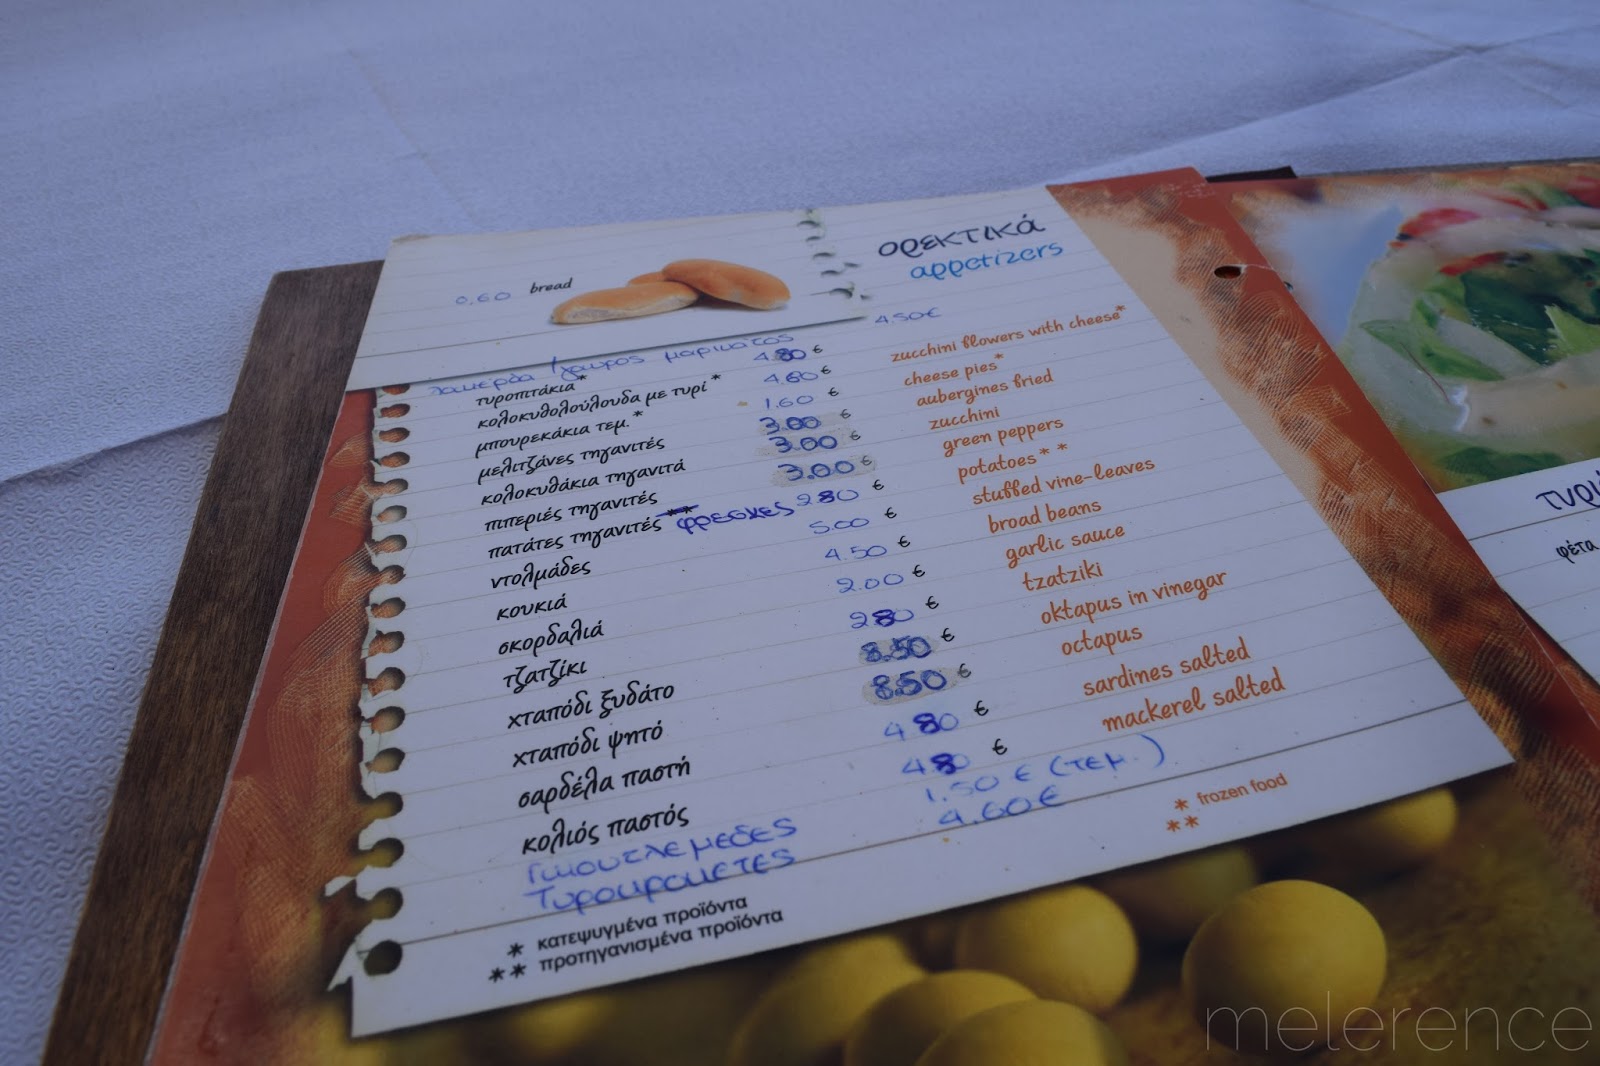 0,60 bread
ορεκτικά
appetizers
λακέρδα / γαύρος μαρινάτος 4.50€
τυροπιτάκια* 4.80 € zucchini flowers with cheese*
κολοκυθολούλουδα με τυρί* 4.60 € cheese pies*
μπουρεκάκια τεμ.* 1.60 € aubergines fried
μελιτζάνες τηγανιτές 3.00 € zucchini
κολοκυθάκια τηγανιτά 3.00 € green peppers
πιπεριές τηγανιτές 3.00 € potatoes**
πατάτες τηγανιτές** φρεσκες 2.80 € stuffed vine-leaves
ντολμάδες 5.00 € broad beans
κουκιά 4.50 € garlic sauce
σκορδαλιά 2.00 € tzatziki
τζατζίκι 2.80 € oktapus in vinegar
χταπόδι ξυδάτο 8.50 € octapus
χταπόδι ψητό 8.50 € sardines salted
σαρδέλα παστή 4.80 € mackerel salted
κολιός παστός 4.80 €
Γιουτλεμεδες 1.50 € (τεμ.)
Τυροκροκετες 4.60€
* κατεψυγμένα προϊόντα
** προτηγανισμένα προϊόντα
* frozen food
**
φέτα
melerence